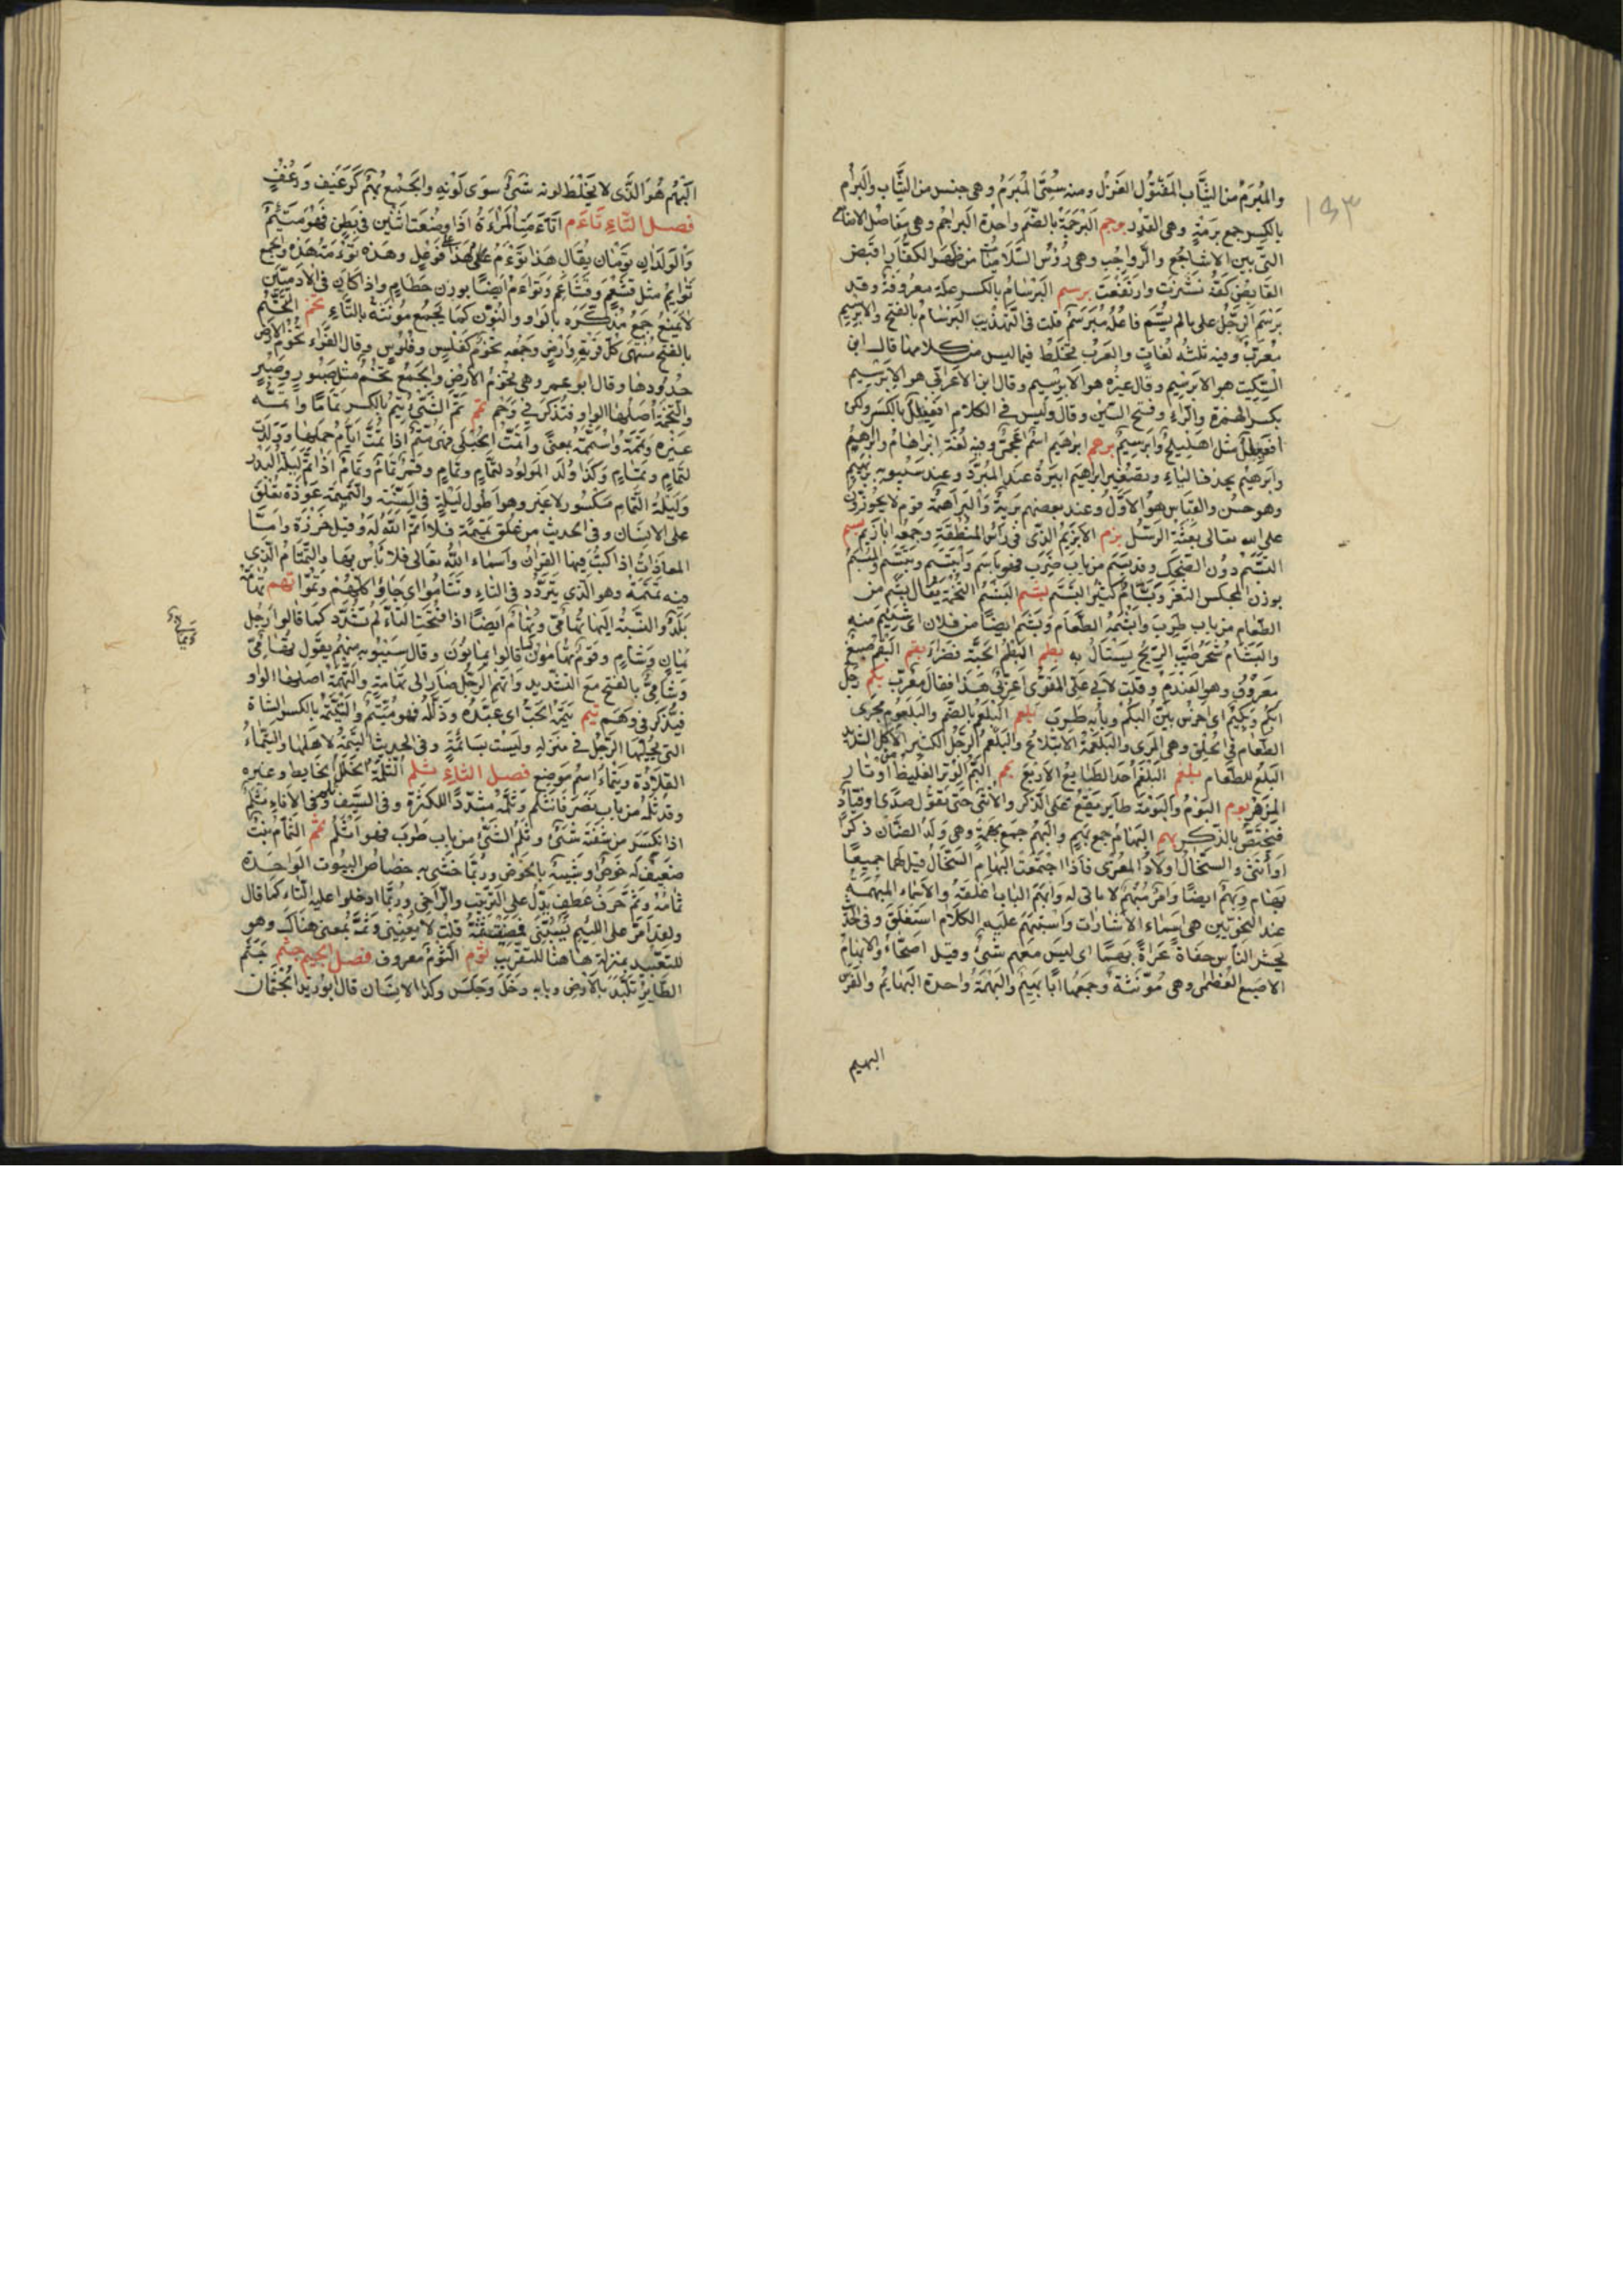 ١٩٣
والمُبْرَمُ من الثِّيَاب المَفْتُول الغَزْل ومنه سُمِّىَ المُبْرَمُ وهى جنس من الثِّيَاب والبِرَام
بالكسر جمع بُرْمَة وهى القِدْر برجم البُرْجُمَة بالضَّم واحدة البَراجِم وهى مَفاصِل الاصابع
التى بين الاشاجع والرَّواجب وهى رُؤُس السُّلَاميَّات من ظهر الكف اذا قبض
القابض كفَّه نشزت وارتفعت برسم البِرْسَام بالكسر علة معروفة وقد
بُرْسِمَ الرَّجُل على ما لم يُسَمَّ فاعله فهو مُبَرْسَم قلت فى التهذيب البرسام بالفتح والابريسم
معرّب وفيه ثلث لغات والعرب تخلط فيما ليس من كلامها قال ابن
السِّكّيت هو الابريسم وقال غيره هو الابريسم وقال ابن الاعرابى هو الابريسم
بكسر الهمزة والراء وفتح السين وقال وليس فى الكلام افعيلل بالكسر ولكن
افعيلل مثل اهليلج وابريسم برهم ابراهيم اسم اعجمى وفيه لغة ابراهام وابراهم
وابرهم بحذف الياء وتصغير ابراهيم ابيره عند المبرد وعند سيبويه بريهيم
وهو حسن والقياس هو الاول وعند بعضهم بريه والبراهمة قوم لا يجوزون
على الله تعالى بعثة الرسل بزم الابزيم الذى فى رأس المنطقة وجمعه ابازيم بسم
التبسم دون الضحك وقد بسم من باب ضرب فهو باسم وابتسم وتبسم والمبسم
بوزن المجلس الثغر وبسام كثير التبسم بشم البشم التخمة يقال بشم من
الطعام من باب طرب وابشمه الطعام وبشم ايضا من فلان اى سئم منه
والبشام شجر طيب الريح يستاك به بطم البطم الحبة الخضراء بقم البقم صبغ
معروف وهو العندم وقلت لابى على الفسوى اعربى هذا فقال معرب بكم رجل
ابكم وبكيم اى اخرس بين البكم وبابه طرب بلعم البلعم بالضم والبلعوم مجرى
الطعام فى الحلق وهى المرى والبلعمة الابتلاع والبلعم الرجل الكثير الاكل الشديد
البلع للطعام بلغم البلغم احد الطبايع الاربع بمم البم الوتر الغليظ من اوتار
المزهر بوم البوم والبومة طاير يقع على الذكر والانثى حتى تقول صدى او فياد
فيختص بالذكر بهم البهام جمع بهم والبهم جمع بهمة وهى ولد الضان ذكرا
او انثى والسخال اولاد المعزى فاذا اجتمعت البهام والسخال قيل لهما جميعا
بهام وبهم ايضا وامر مبهم لا ماتى له وابهم الباب اغلقه والاسماء المبهمة
عند النحويين هى اسماء الاشارات واستبهم عليه الكلام استغلق وفى الحديث
يحشر الناس حفاة عراة بهما اى ليس معهم شئ وقيل اصحاء والابهام
الاصبع العظمى وهى مؤنثة وجمعها اباهيم والبهمة واحدة البهايم والفرس
البهيم
البهيم هو الذى لا يخلط لونه شئ سوى لونه والجمع بهم كرغيف ورغف
فصل التاء تاءم اتاءمت المراءة اذا وضعت اثنين فى بطن فهو متئم
والولدان توءمان يقال هذا توءم هذا على فوعل وهذه توءمة هذه والجمع
توايم مثل قشعم وقشاعم وتواءم ايضا بوزن حطام واذا كان فى الادميين
لا يمنع جمع مذكره بالواو والنون كما يجمع مؤنثه بالتاء تخم التخم
بالفتح منتهى كل قرية وارض وجمعه تخوم كفلس وفلوس وقال الفراء تخوم الارض
حدودها وقال ابو عمرو هى تخوم الارض والجمع تخم مثل صبور وصبر
والتخمة اصلها الواو فتذكر فى وخم تمم تم الشئ يتم بالكسر تماما واتمه
غيره وتممه واستتمه بمعنى واتمت الحبلى فهى متم اذا تمت ايام حملها وولدت
لتمام وتمام وكذا ولد المولود لتمام وتمام وقمر تمام وتمام اذا تم ليلة البدر
وليلة التمام مكسور لا غير وهو اطول ليلة فى السنة والتميمة عوذة تعلق
على الانسان وفى الحديث من علق تميمة فلا اتم الله له وقيل خرزة واما
المعاذات اذا كتب فيها القران واسماء الله تعالى فلا باس بها والتمتام الذى
فيه تمتمة وهو الذى يتردد فى التاء وتتاموا اى جاؤا كلهم وتموا تهم تهامة
بلد والنسبة اليها تهامى وتهام ايضا اذا فتحت التاء لم تشدد كما قالوا رجل
يمان وشام وقوم تهامون كما قالوا يمانون وقال سيبويه منهم يقول تهامى
وشامى بالفتح مع التشديد واتهم الرجل صار الى تهامة والتهمة اصلها الواو
فيذكر فى وهم تيم تيمه الحب اى عبده وذلله فهو متيم والتيمة بالكسر الشاة
التى يحلبها الرجل فى منزله وليست بسائمة وفى الحديث التيمة لاهلها والتيماء
الفلاة وتيماء اسم موضع فصل الثاء ثلم الثلمة الخلل فى الحايط وغيره
وقد ثلمه من باب ضرب فانثلم وتثلم مشددا للكثرة وفى السيف ثلم وفى الاناء ثلم
اذا انكسر من شفته شئ وثلم الشئ من باب طرب فهو اثلم ثمم الثمام نبت
ضعيف له خوص او شبيه بالخوص وربما حشى به خصاص البيوت الواحدة
ثمامة وثم حرف عطف يدل على الترتيب والتراخى وربما ادخلوا عليه التاء كما قال
ولقد امر على اللئيم يسبنى فمضيت ثمة قلت لا يعنينى وثم بمعنى هناك وهو
للتبعيد بمنزلة هاهنا للتقريب ثوم الثوم معروف فصل الجيم جثم جثم
الطاير تلبد بالارض وبابه دخل وجلس وكذا الانسان قال ابو زيد الجثمان